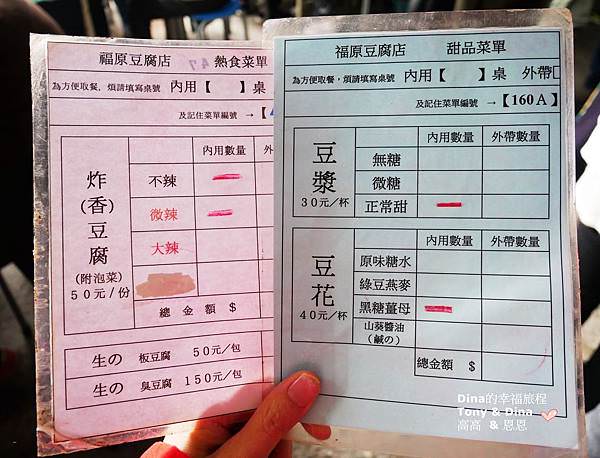 福原豆腐店 熱食菜單
為方便取餐，煩請填寫桌號 內用【 】桌
及記住菜單編號 →【
內用數量 外
炸(香)豆腐
(附泡菜)
50元/份
不辣
微辣
大辣
總金額 $
生の 板豆腐 50元/包
生の 臭豆腐 150元/包
福原豆腐店 甜品菜單
為方便取餐，煩請填寫桌號 內用【 】桌 外帶□
及記住菜單編號 →【160A】
內用數量 外帶數量
豆漿
30元/杯
無糖
微糖
正常甜
內用數量 外帶數量
豆花
40元/杯
原味糖水
綠豆燕麥
黑糖薑母
山葵醬油
(鹹の)
總金額 $
Dina的幸福旅程
Tony & Dina
高高 & 恩恩